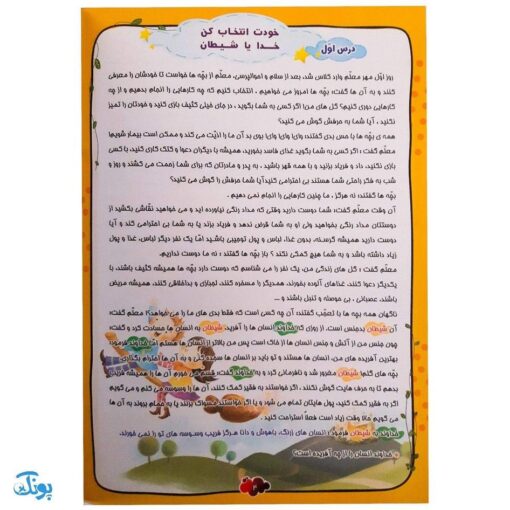 خودت انتخاب کن
خدا یا شیطان
درس اول
روز اوّل مهر معلّم وارد کلاس شد، بعد از سلام و احوالپرسی، معلّم از بچّه ها خواست تا خودشان را معرفی
کنند و به آن ها گفت: بچّه ها امروز می خواهیم ، انتخاب کنیم که چه کارهایی را انجام بدهیم و از چه
کارهایی دوری کنیم؟ گل های من! اگر کسی به شما بگوید ، در جای خیلی کثیف بازی کنید و خودتان را تمیز
نکنید ، آیا شما به حرفش گوش می کنید؟
همه ی بچّه ها با هم گفتند: وای وای! بوی بد آن ما را اذیّت می کند و ممکن است بیمار شویم!
معلّم گفت : اگر کسی به شما بگوید غذای فاسد بخورید، همیشه با دیگران دعوا و کتک کاری کنید، با کسی
بازی نکنید، داد و فریاد بزنید و با همه قهر باشید . به پدر و مادرتان که برای شما زحمت می کشند و روز و
شب به فکر راحتی شما هستند بی احترامی کنید آیا شما حرفش را گوش می کنید؟
بچّه ها گفتند: نه هرگز ، ما چنین کارهایی را انجام نمی دهیم .
آن وقت معلّم گفت: شما دوست دارید وقتی که مداد رنگی نیاورده اید و می خواهید نقّاشی بکشید از
دوستتان مداد رنگی بخواهید ولی او به شما قرض ندهد و فریاد بزند یا به شما بی احترامی کند و آیا
دوست دارید همیشه گرسنه، بدون غذا، لباس و پول توجیبی باشید امّا یک نفر دیگر لباس، غذا و پول
زیاد داشته باشد و به شما هیچ کمکی نکند ؟ باز بچّه ها گفتند : نه ما دوست نداریم.
معلّم گفت : گل های زندگی من، یک نفر را می شناسم که دوست دارد بچّه ها همیشه کثیف باشند، با
یکدیگر دعوا کنند، غذاهای آلوده بخورند، همدیگر را مسخره کنند، لجبازی و بداخلاقی کنند، همیشه مریض
باشند، عصبانی ، بی حوصله و تنبل باشند و ...
ناگهان همه بچه ها با تعجّب گفتند: آن چه کسی است که فقط بدی های ما را می خواهد؟ معلّم گفت:
آن شیطان بدجنس است. از روزی که خداوند انسان ها را آفرید، شیطان به انسان ها حسادت کرد و گفت:
چون جنس من از آتش و جنس انسان ها از خاک است پس من بالاتر از انسان ها هستم امّا خداوند فرمود:
بهترین آفریده های من، انسان ها هستند و تو باید بر انسان ها سجده کنی و به آن ها احترام بگذاری
بچّه های گلم! شیطان مغرور شد و نافرمانی کرد و به خداوند گفت: قسم می خورم آن ها را همیشه فریب
بدهم تا به حرف هایت گوش نکنند . اگر خواستند به فقیر کمک کنند، آن ها را وسوسه می کنم و می گویم
اگر به فقیر کمک کنید، پول هایتان تمام می شود و یا اگر خواستند مسواک بزنند یا به حمام بروند به آن ها
می گویم حالا وقت زیاد است فعلاً استراحت کنید .
خداوند به شیطان فرمود : انسان های زرنگ، باهوش و دانا هرگز فریب وسوسه های تو را نمی خورند.
* خداوند انسان را از چه آفریده است؟
پونک